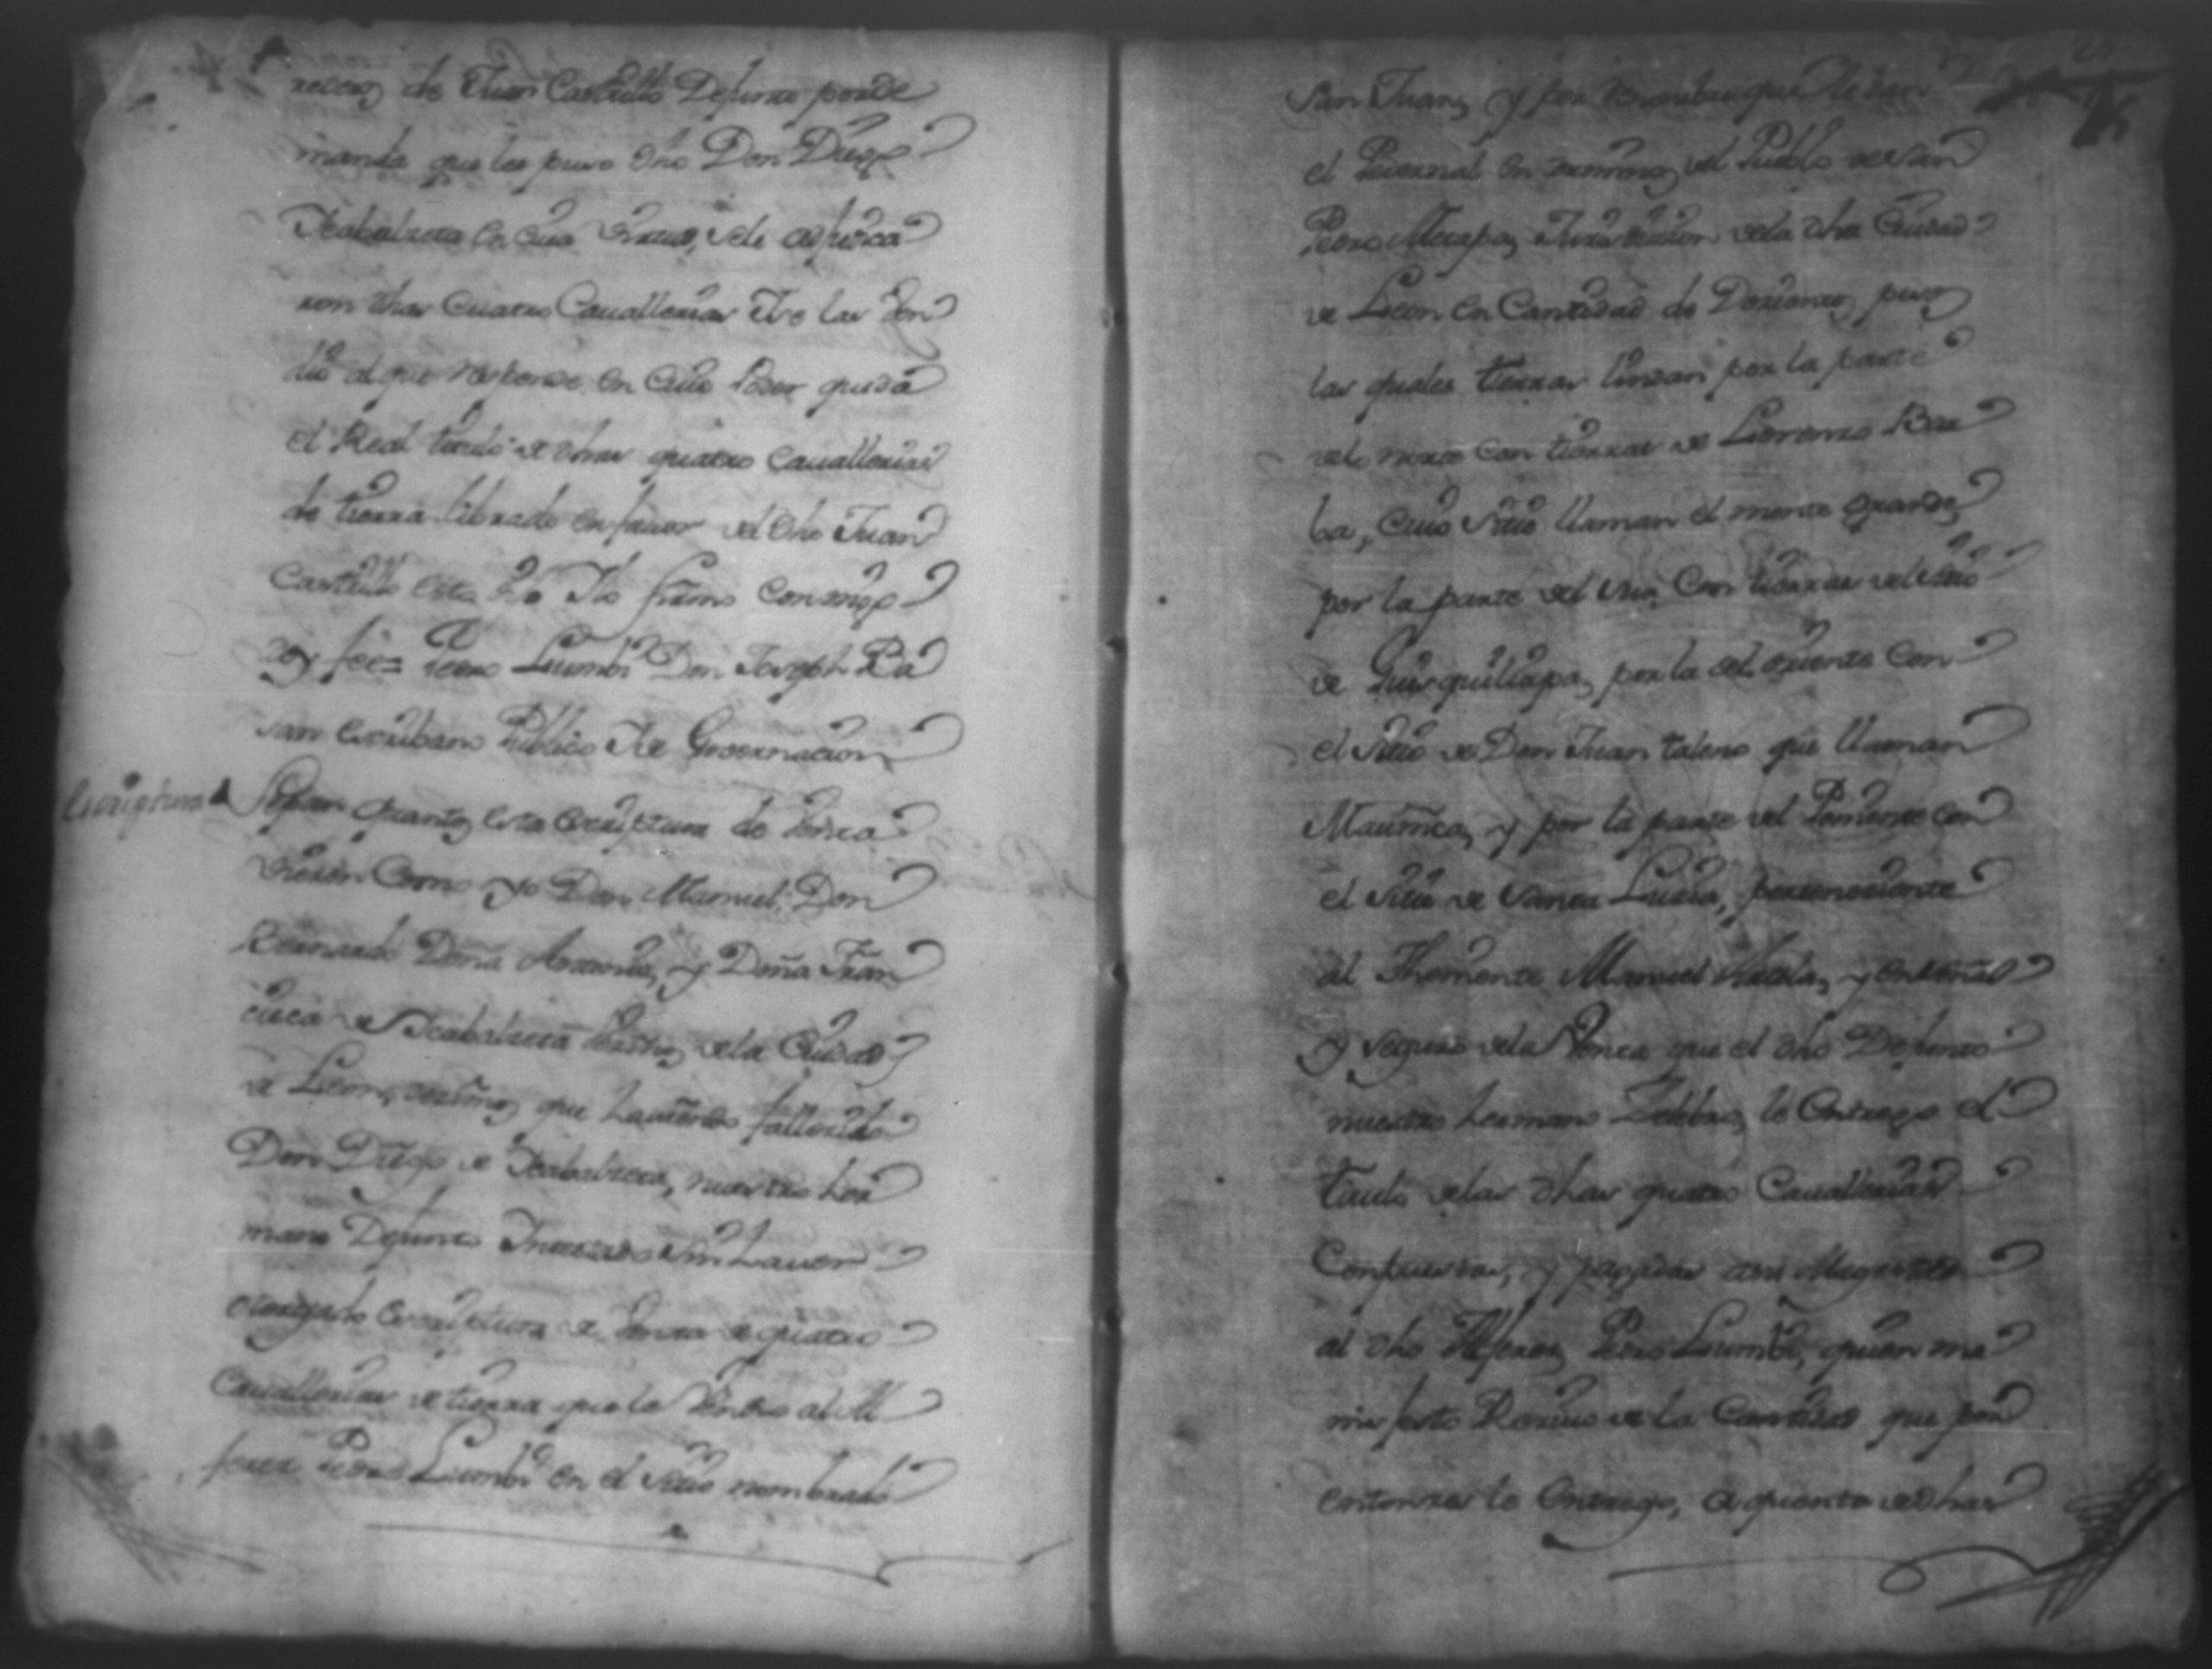 rederos de Juan Castillo Defunto por de
manda que les puso dho Don Diego
Icabalzeta en cuia virtud, se le adjudica
ron dhas cuatro Cauallerias I se las ven
dio al que responde en cuio Poder queda
el Real titulo de dhas quatro Cauallerias
de tierra librado en fauor del dho Juan
Castillo esta Rta Ilo firmo conmigo
Doy fee= Pedro Luumbi Don Joseph Ra
san escribano Publico I de Governacion
Escriptura Sepan quantos esta escriptura de Venta
vieren Como yo Don Manuel, Don
Bernardo Doña Antonia, y Doña Fran
cisca de Icabalzeta Vezinos de la Ciudad
de Leon, dezimos que hauiendo fallecido
Don Diego de Icabalzeta, nuestro her
mano Defunto Intestado sin hauer
otorgado escriptura de Venta de quatro
Cauallerias de tierra que le Vendio al Al
ferez Pedro Luumbi en el sitio nombrado
San Juan, y por nombre que le dan
el Pedernal en terminos del Pueblo de San
Pedro Metapa, Jurisdicion de la dha Ciudad
de Leon en Cantidad de Docientos pesos
las quales tierras lindan por la parte
del norte con tierras de Lorenzo Bar
ba, cuio sitio llaman el monte grande,
por la parte del Sur, con tierras del sitio
de Guisquiliapa, por la del oriente con
el sitio de Don Juan taleno que llaman
y por la parte del Poniente con
el sitio de Santa Lucia, perteneciente
al Theniente Manuel y en señal
y seguro de la Venta que el dho Defunto
nuestro hermano Zelebro, le Entrego el
titulo de las dhas quatro Cauallerias
al dho Alferez Pedro Luumbi, quien ma
nifesto Reciuo de la Cantidad que por
entonzes le Entrego, a quenta de dhas